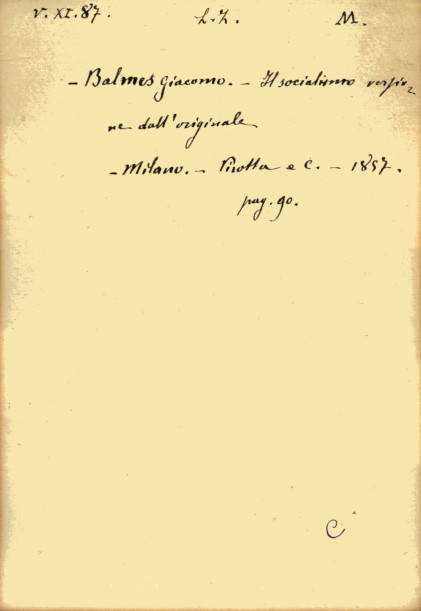 V. XI. 87. L. Z. M.
- Balmes Giacomo. - Il socialismo versio-
ne dall'originale
- Milano. - Pirotta e C. - 1857.
pag. 90.
C